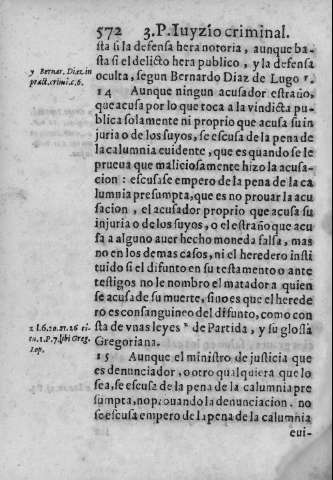 572 3.P. Iuyzio criminal.
sta si la defensa hera notoria, aunque ba-
sta si el delicto hera publico, y la defensa
oculta, segun Bernardo Diaz de Lugo y.
y Bernar. Diaz. in
pract. crimi. c. 6.
14 Aunque ningun acusador estraño,
que acusa por lo que toca a la vindicta pu-
blica solamente ni proprio que acusa su in
juria o de los suyos, se escusa de la pena de
la calumnia euidente, que es quando se le
prueua que maliciosamente hizo la acusa-
cion: escusase empero de la pena de la ca
lumnia presumpta, que es no prouar la acu
sacion, el acusador proprio que acusa su
injuria o de los suyos, o el estraño que acu
sa a alguno auer hecho moneda falsa, mas
no en los demas casos, ni el heredero insti
tuido si el difunto en su testamento o ante
testigos no le nombro el matador a quien
se acusa de su muerte, sino es que el herede
ro es consanguineo del difunto, como con
sta de vnas leyes z de Partida, y su glossa
Gregoriana.
z l. 6. 20. 21. 26 ti-
tu. 1. P. 7. ibi Greg.
Lop.
15 Aunque el ministro de justicia que
es denunciador, o otro qualquiera que lo
sea, se escusa de la pena de la calumnia pre
sumpta, no prouando la denunciacion. no
se escusa empero de la pena de la calumnia
eui-